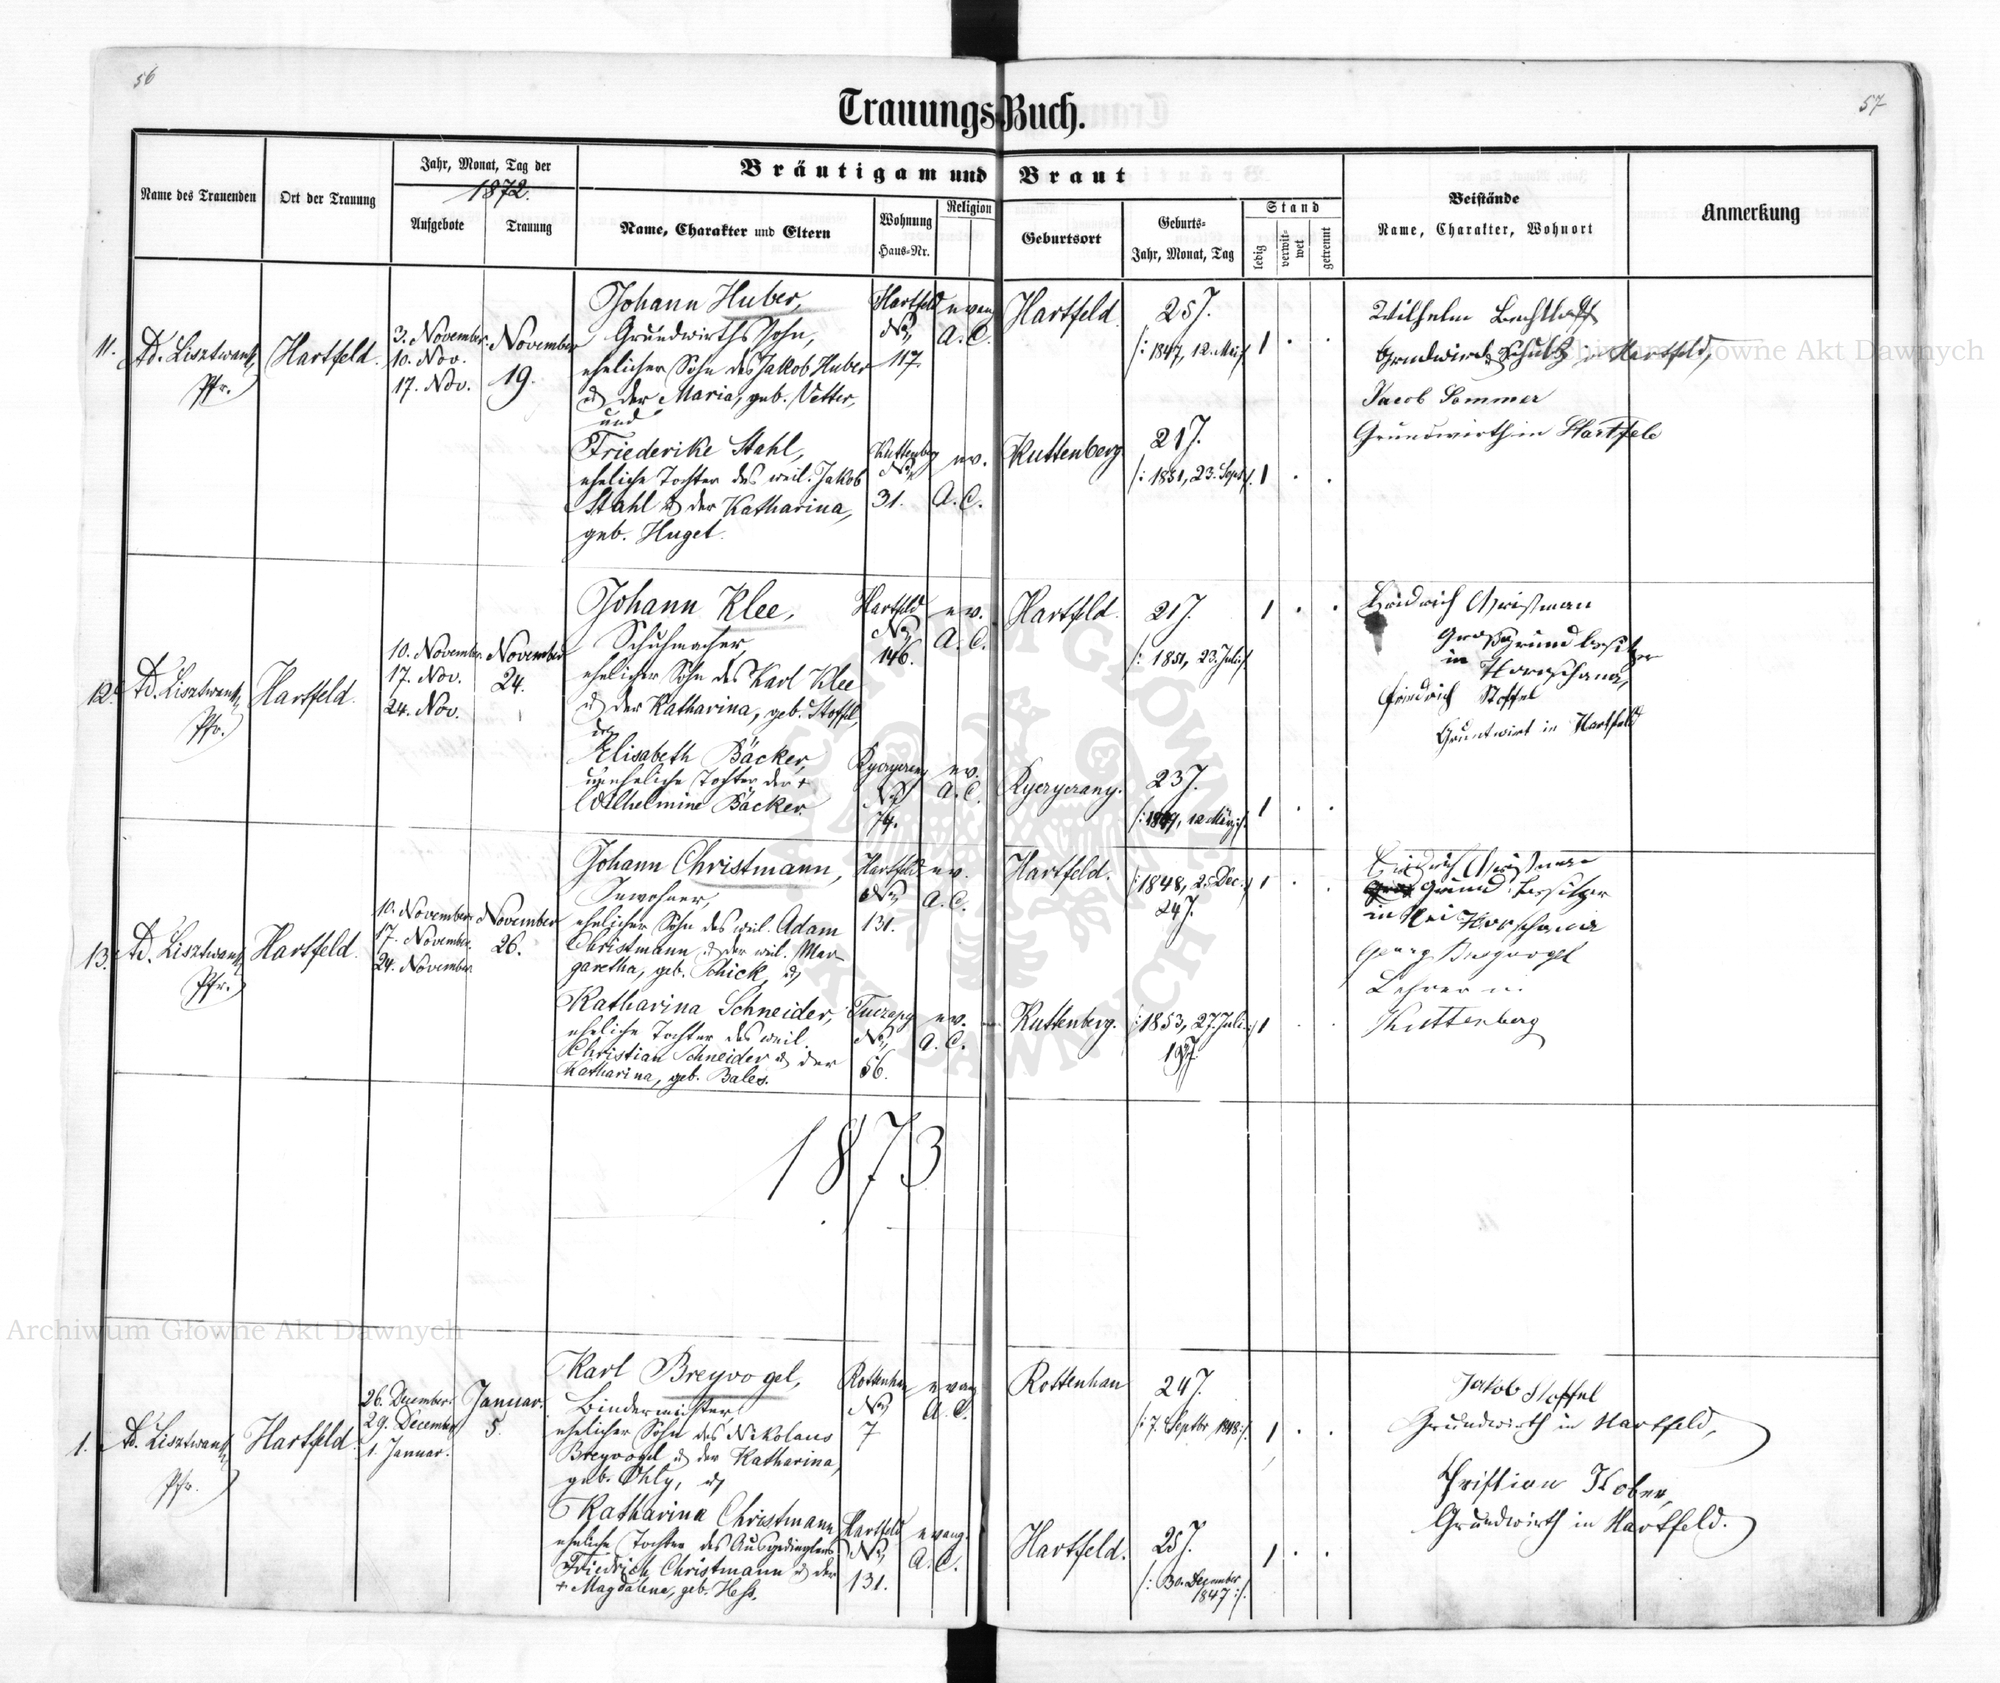 56
57
Trauungs-Buch.
Name des Trauenden
Ort der Trauung
Jahr, Monat, Tag der
1872.
Aufgebote
Trauung
Bräutigam und Braut
Name, Charakter und Eltern
Wohnung
Haus-Nr.
Religion
Geburtsort
Geburts-
Jahr, Monat, Tag
Stand
ledig
verwit-
wet
getrennt
Beistände
Name, Charakter, Wohnort
Anmerkung
11.
Ad. Lisztwan
Pfr.
Hartfeld.
3. November.
10. Nov.
17. Nov.
November
19.
Johann Huber,
Grundwirths Sohn,
ehelicher Sohn des Jakob Huber
u der Maria, geb. Vetter,
und
Friederike Stahl,
eheliche Tochter des weil. Jakob
Stahl u der Katharina,
geb. Huget.
Hartfeld
No
117.
evang
A. C.
Kuttenberg
No
31.
ev.
A. C.
Hartfeld.
25 J.
/: 1847, 12. Mai :/
1 . .
Kuttenberg
21 J.
/: 1851, 23. Sept :/.
1 . .
Wilhelm
Schultz in Hartfeld,
Jacob Sommer
Grundwirth in Hartfeld
12.
Ad. Lisztwan
Pfr.
Hartfeld.
10. November.
17. Nov.
24. Nov.
November
24.
Johann Klee,
Schuhmacher,
ehelicher Sohn des Karl Klee
u der Katharina, geb. Stoffel,
u
Elisabeth Bäcker,
uneheliche Tochter der +
Wilhelmine Bäcker.
Hartfeld
No
146.
ev.
A. C.
No
74.
ev.
A. C.
Hartfeld.
21 J.
/: 1851, 23. Juli :/
1 . .
23 J.
/: 1849, 12 März :/.
1 . .
Fridrich Christman
Großgrund besitzer
in
Friedrich Stoffel
Gruntwirt in Hartfeld
13.
Ad. Lisztwan
Pfr.
Hartfeld.
10. November.
17. November.
24. November.
November
26.
Johann Christmann,
Inwohner,
ehelicher Sohn des weil. Adam
Christmann u der weil. Mar-
garetha, geb. Schick, u
Katharina Schneider,
eheliche Tochter des weil.
Christian Schneider u der
Katharina, geb. Bales.
Hartfeld
No
131.
ev.
A. C.
Tuczapy
No
56.
ev.
A. C.
Hartfeld.
/: 1848, 25 Dec. :/
24 J.
1 . .
Kuttenberg.
/: 1853, 27. Juli :/
19 J.
1 . .
Fridrich Christman
Grund besitzer
in
Georg Breyvogel
Lehrer in
Kuttenberg
1873
1.
Ad. Lisztwan
Pfr.
Hartfeld.
26. December.
29. December
1. Januar.
Januar.
5.
Karl Breyvogel,
Bindermeister,
ehelicher Sohn des Nikolaus
Breyvogel u der Katharina,
geb. Ohly, u
Katharina Christmann
eheliche Tochter des Ausgedinglers
Friedrich Christmann u der
+ Magdalena, geb. Heß.
Rottenhan
No
7
evang
A. C.
Hartfeld
No
131.
evang.
A. C.
Rottenhan
24 J.
/: 7. Septbr 1848 :/.
1 . .
Hartfeld.
25 J.
/: 30. December
1847 :/.
1 . .
Jakob Stoffel
Grundwirth in Hartfeld,
Christian Kober,
Grundwirth in Hartfeld.
Archiwum Główne Akt Dawnych
Archiwum Główne Akt Dawnych